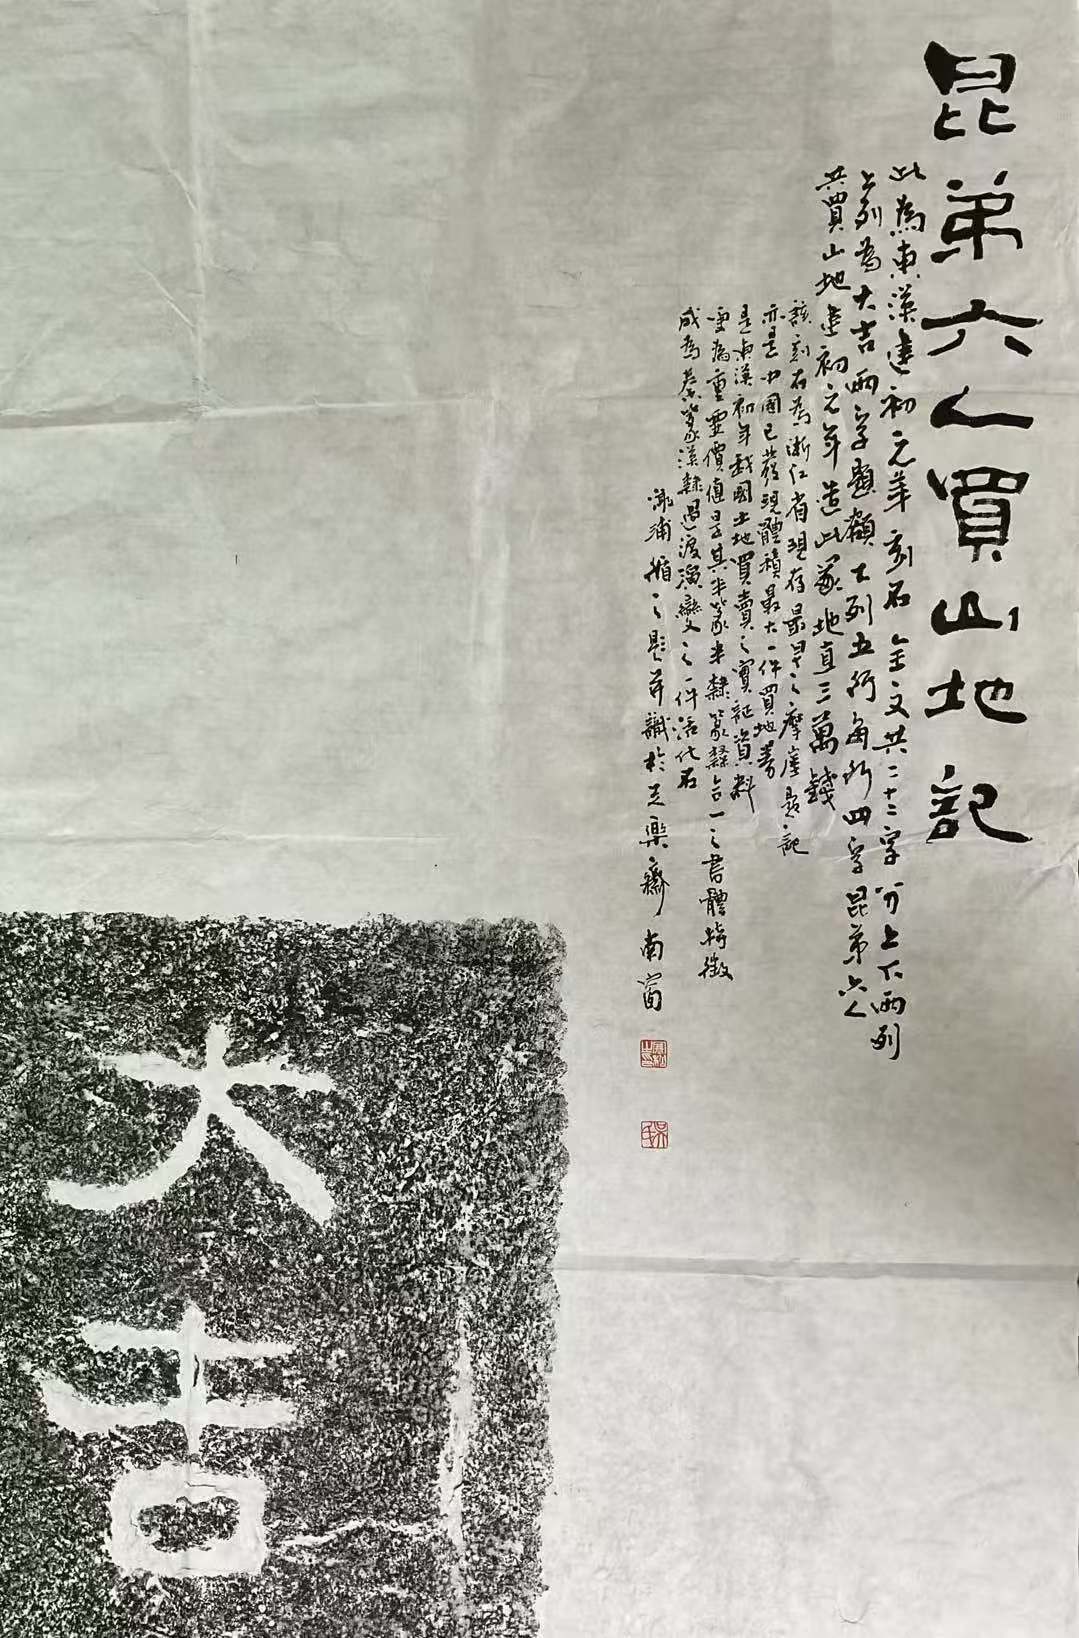 昆弟六人買山地記
此為東漢建初元年刻石 全文共二十二字分上下兩列
上列為大吉兩字題額 下列五行每行四字 昆弟六人
共買山地 建初元年 造此冢地 直三萬錢
該刻石為浙江省現存最早之摩崖題記
亦是中國已發現體積最大一件買地券
是東漢初年我國土地買賣之實証資料
更為重要價值是其半篆半隸篆隸合一之書體特徵
成為秦篆漢隸過渡演變之一件活化石
漵浦 循之題并識於足樂齋南窗
大吉